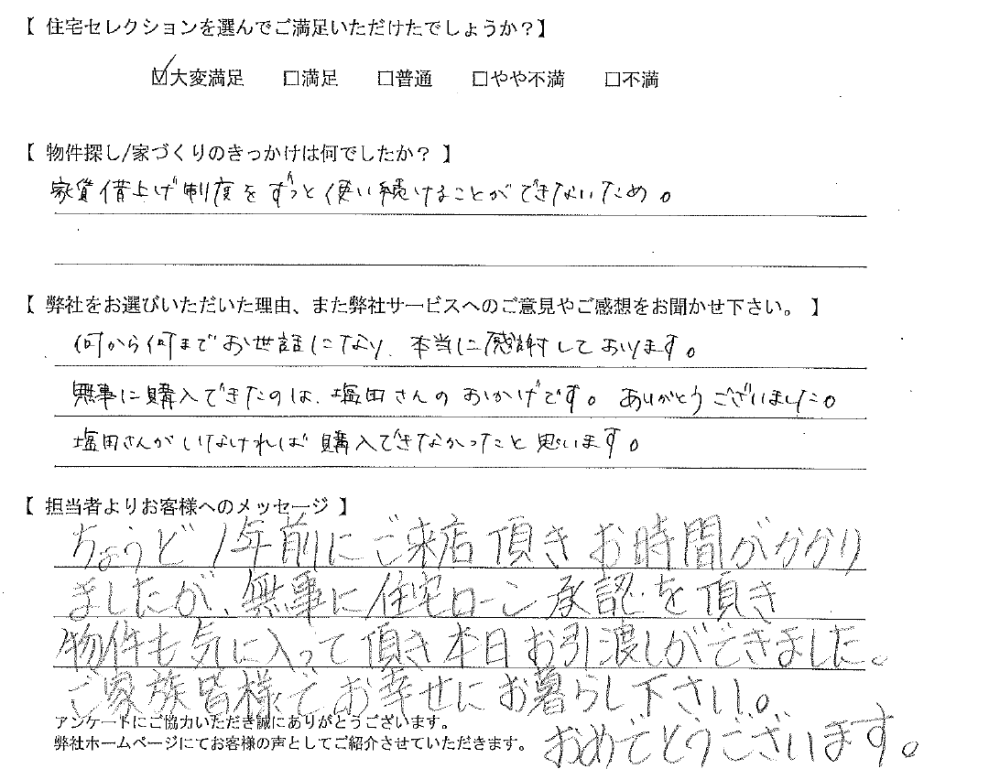 【 住宅セレクションを選んでご満足いただけたでしょうか？】
☑大変満足 □満足 □普通 □やや不満 □不満
【 物件探し/家づくりのきっかけは何でしたか？ 】
家賃借上げ制度をずっと使い続けることができないため。
【 弊社をお選びいただいた理由、また弊社サービスへのご意見やご感想をお聞かせ下さい。 】
何から何までお世話になり、本当に感謝しております。
無事に購入できたのは、塩田さんのおかげです。ありがとうございました。
塩田さんがいなければ購入できなかったこと思います。
【 担当者よりお客様へのメッセージ 】
ちょうど1年前にご来店頂きお時間がかかり
ましたが、無事に住宅ローン承認を頂き
物件も気に入って頂き本日お引渡しができました。
ご家族皆様でお幸せにお暮らし下さい。
アンケートにご協力いただき誠にありがとうございます。
弊社ホームページにてお客様の声としてご紹介させていただきます。
おめでとうございます。